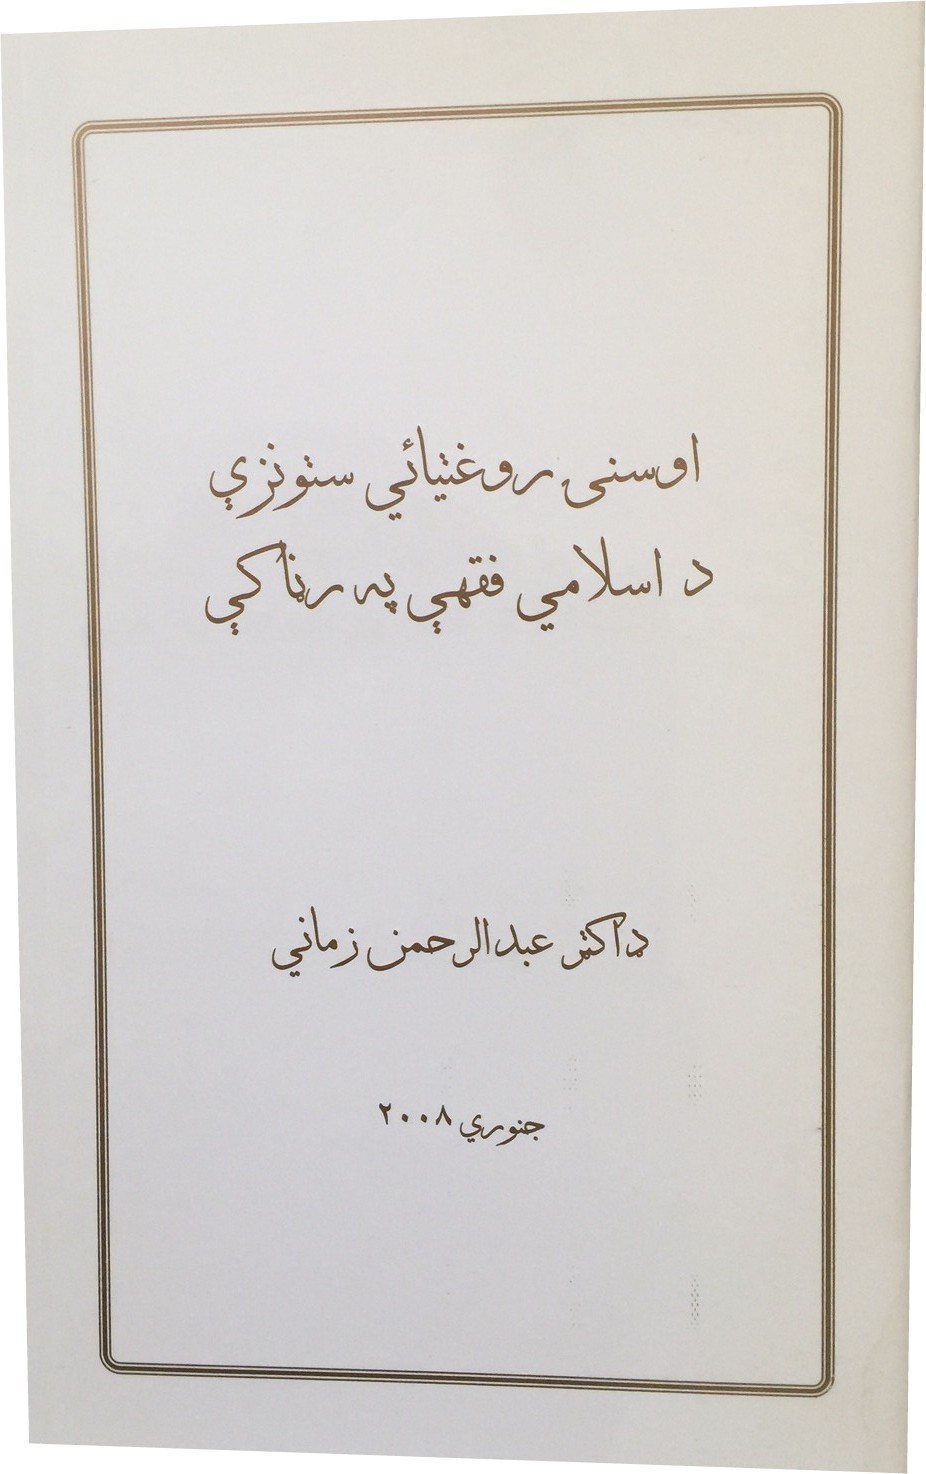 اوسنۍ روغتيائي ستونزې
د اسلامي فقهې په رڼا کې
ډاکټر عبدالرحمن زماني
جنوري ۲۰۰۸